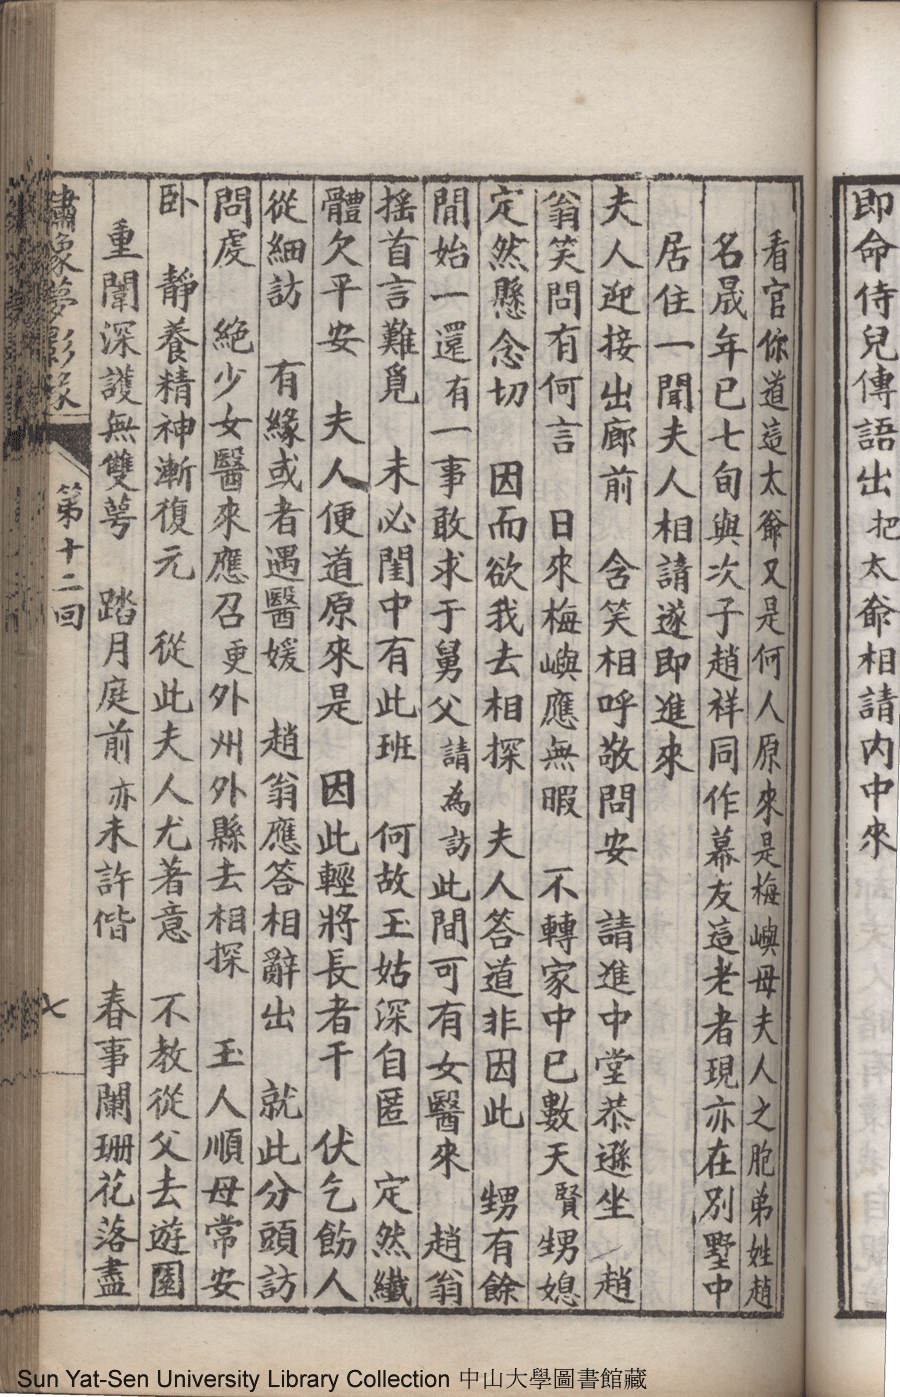 即命侍兒傳語出 把太爺相請内中來
看官你道這太爺又是何人原來是梅嶼母夫人之胞弟姓趙
名晟年已七旬與次子趙祥同作幕友這老者現亦在別墅中
居住一聞夫人相請遂即進來
夫人迎接出廊前 含笑相呼敬問安 請進中堂恭遜坐 趙
翁笑問有何言 日來梅嶼應無暇 不轉家中已數天 賢甥媳
定然懸念切 因而欲我去相探 夫人答道非因此 甥有餘
閒始一還 有一事敢求于舅父 請為訪此間可有女醫來 趙翁
搖首言難覓 未必閨中有此班 何故玉姑深自匿 定然纖
體欠平安 夫人便道原來是 因此輕將長者干 伏乞飭人
從細訪 有緣或者遇醫媛 趙翁應答相辭出 就此分頭訪
問虔 絕少女醫來應召 更外州外縣去相探 玉人順母常安
卧 靜養精神漸復元 從此夫人尤著意 不教從父去遊園
重闈深護無雙萼 踏月庭前亦未許偕 春事闌珊花落盡
繡像夢影緣 第十二回 七
Sun Yat-Sen University Library Collection 中山大學圖書館藏